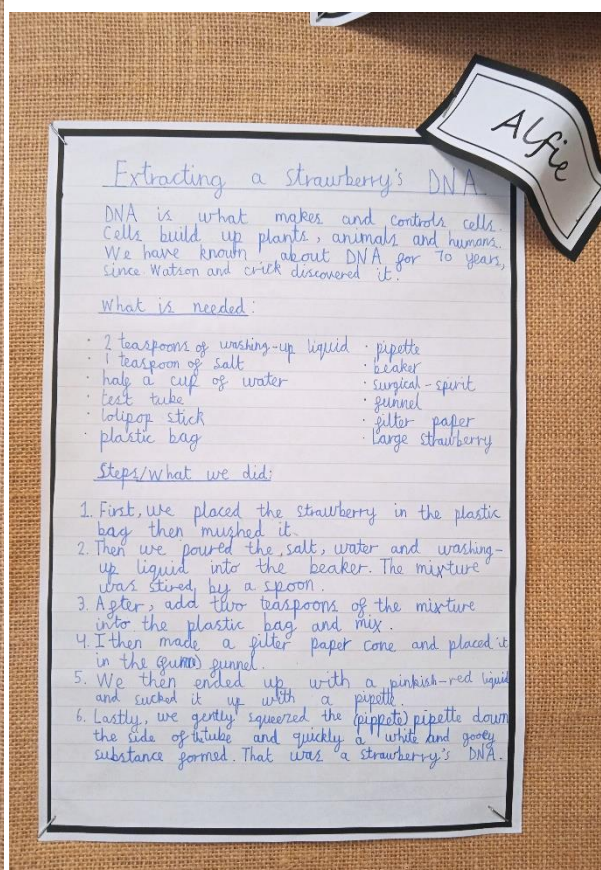 Alfie
Extracting a strawberry's DNA
DNA is what makes and controls cells.
Cells build up plants, animals and humans.
We have known about DNA for 70 years,
since Watson and crick discovered it.
What is needed:
· 2 teaspoons of washing-up liquid · pipette
· 1 teaspoon of salt · beaker
· half a cup of water · surgical-spirit
· test tube · funnel
· lolipop stick · filter paper
· plastic bag · Large strawberry
Steps/What we did:
1. First, we placed the strawberry in the plastic
bag then mushed it.
2. Then we poured the salt, water and washing-
up liquid into the beaker. The mixture
was stired by a spoon.
3. After, add two teaspoons of the mixture
into the plastic bag and mix.
4. I then made a filter paper cone and placed it
in the funnel.
5. We then ended up with a pinkish-red liquid
and sucked it up with a pipette.
6. Lastly, we gently squeezed the (pippete) pipette down
the side of thetube and quickly a white and gooey
substance formed. That was a strawberry's DNA.